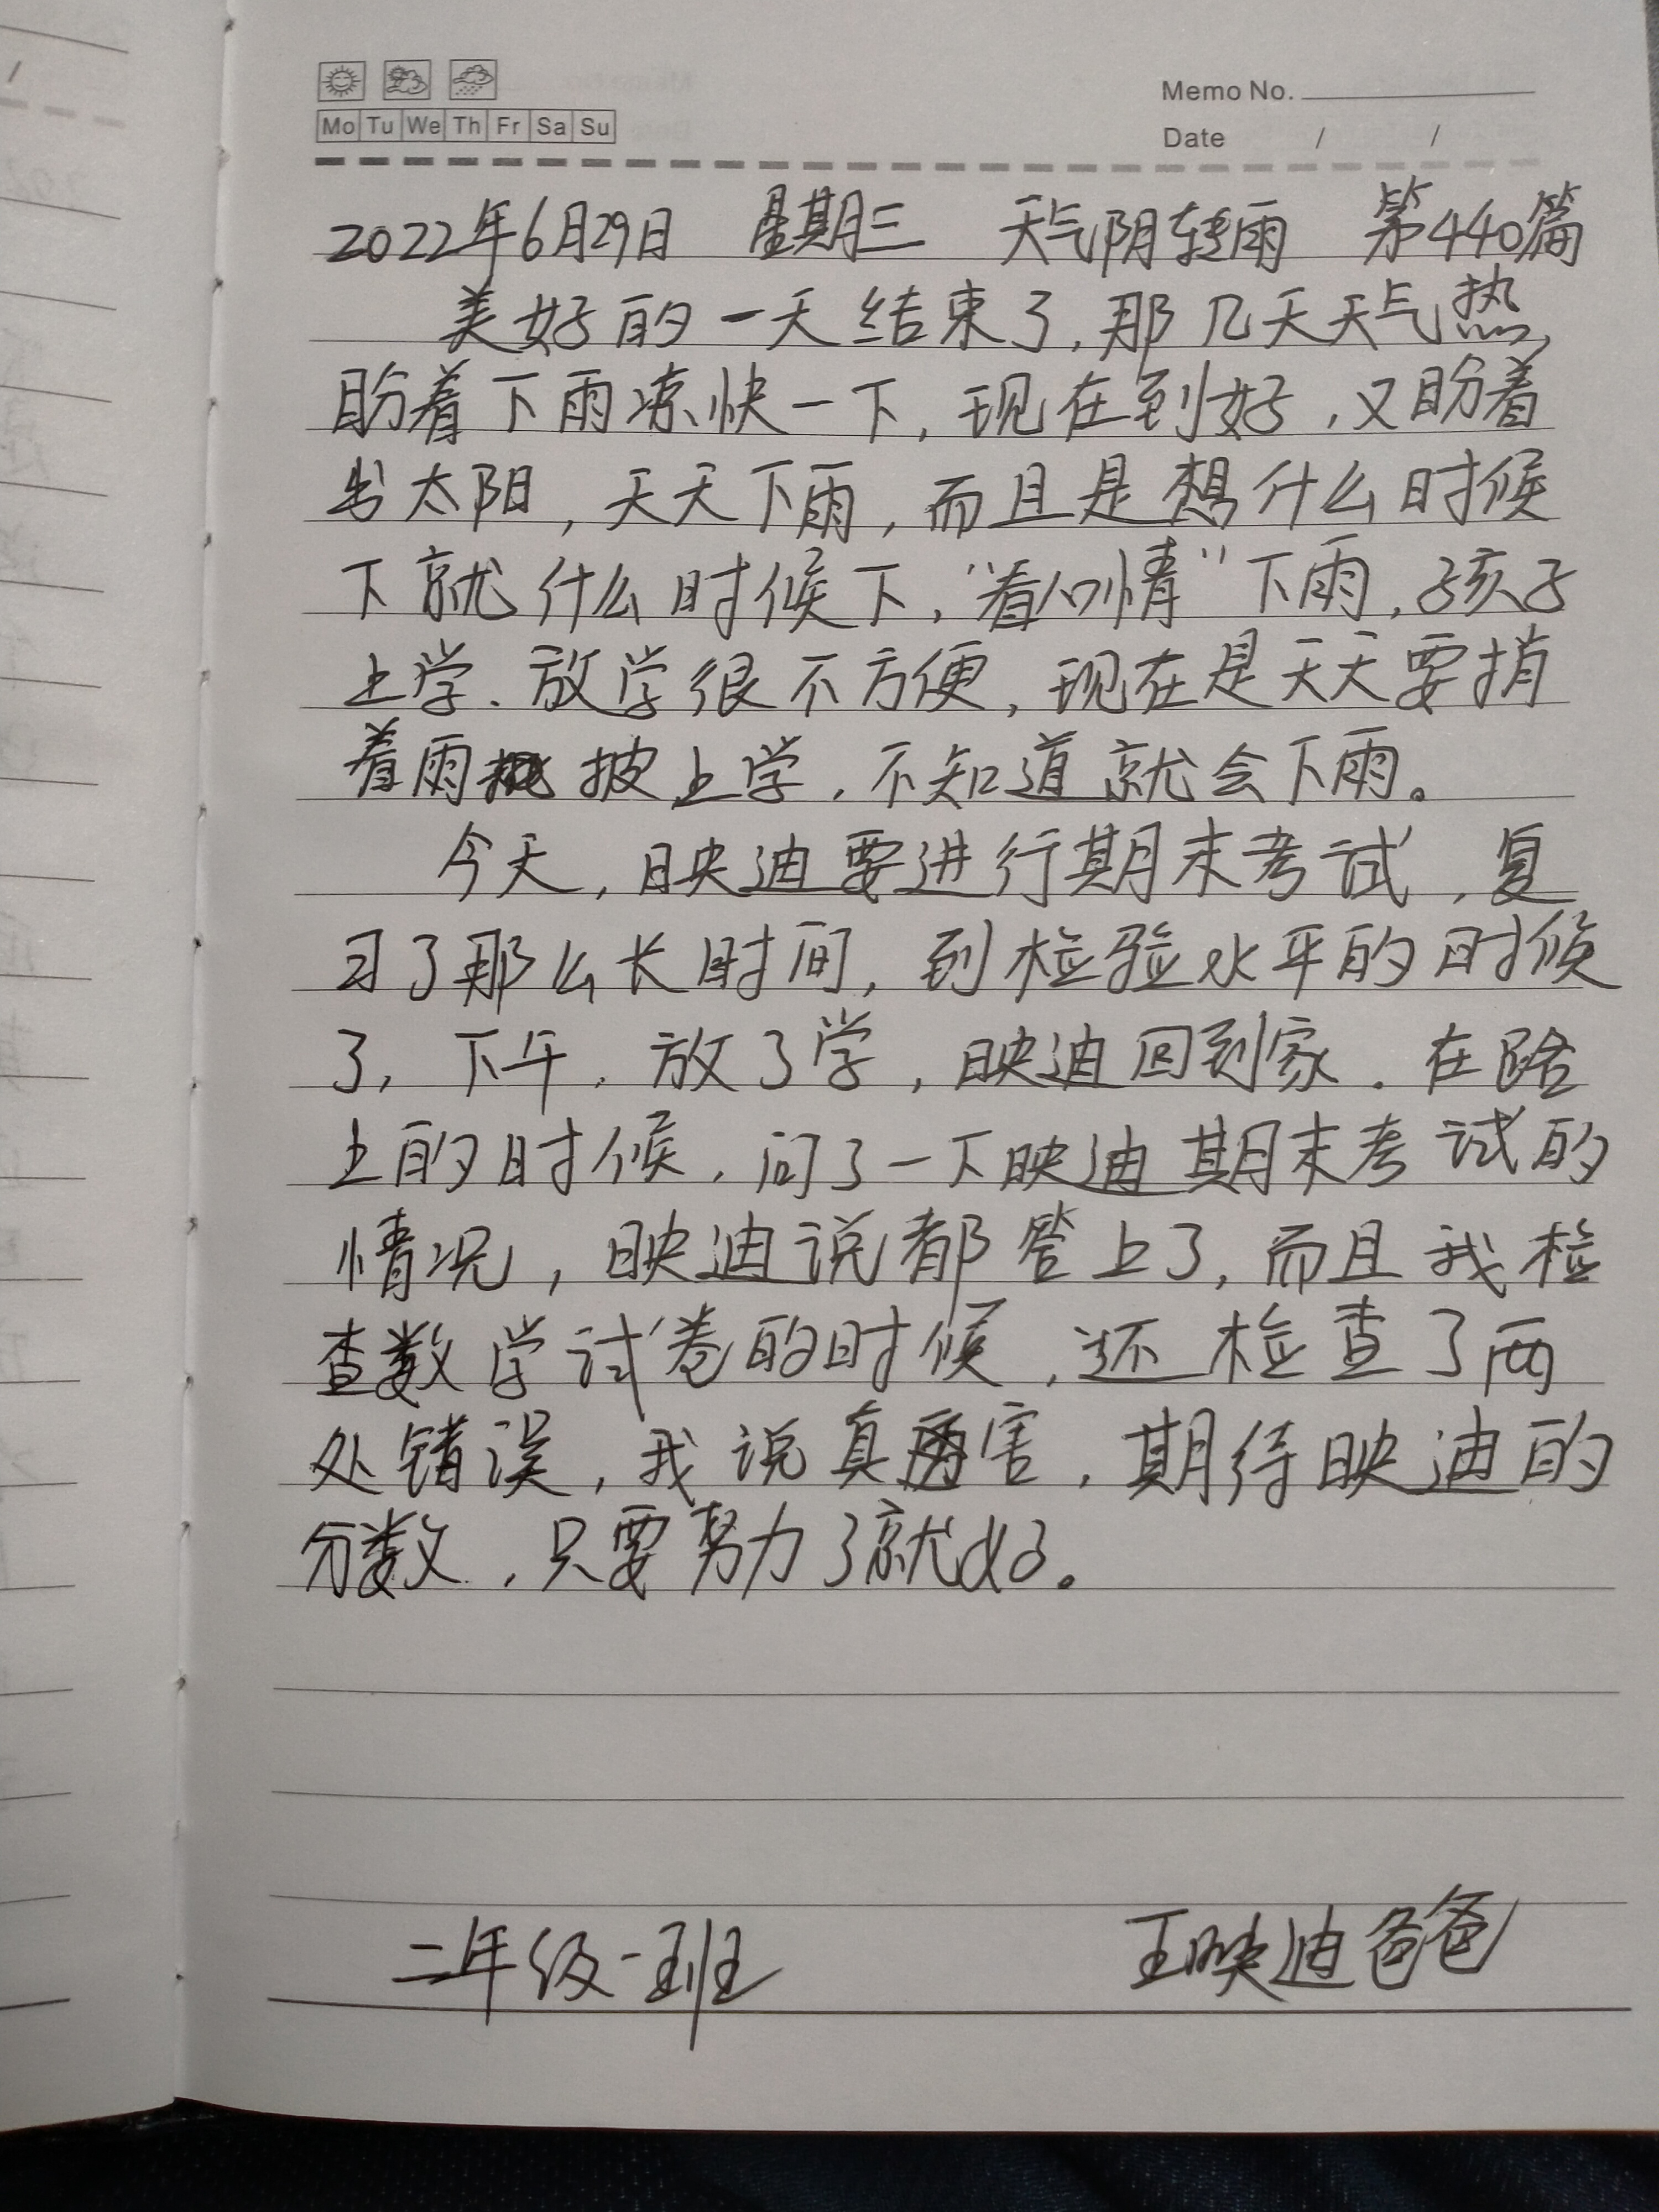 Mo Tu We Th Fr Sa Su
Memo No.
Date / /
2022年6月29日 星期三 天气阴转雨 第440篇
美好的一天结束了,那几天天气热,
盼着下雨凉快一下,现在到好,又盼着
出太阳,天天下雨,而且是想什么时候
下就什么时候下,“看心情”下雨,孩子
上学、放学很不方便,现在是天天要捎
着雨披上学,不知道就会下雨。
今天,映迪要进行期末考试,复
习了那么长时间,到检验水平的时候
了,下午,放了学,映迪回到家.在路
上的时候,问了一下映迪期末考试的
情况,映迪说都答上了,而且我检
查数学试卷的时候,还检查了两
处错误,我说真厉害,期待映迪的
分数,只要努力了就好。
二年级一班 王映迪爸爸